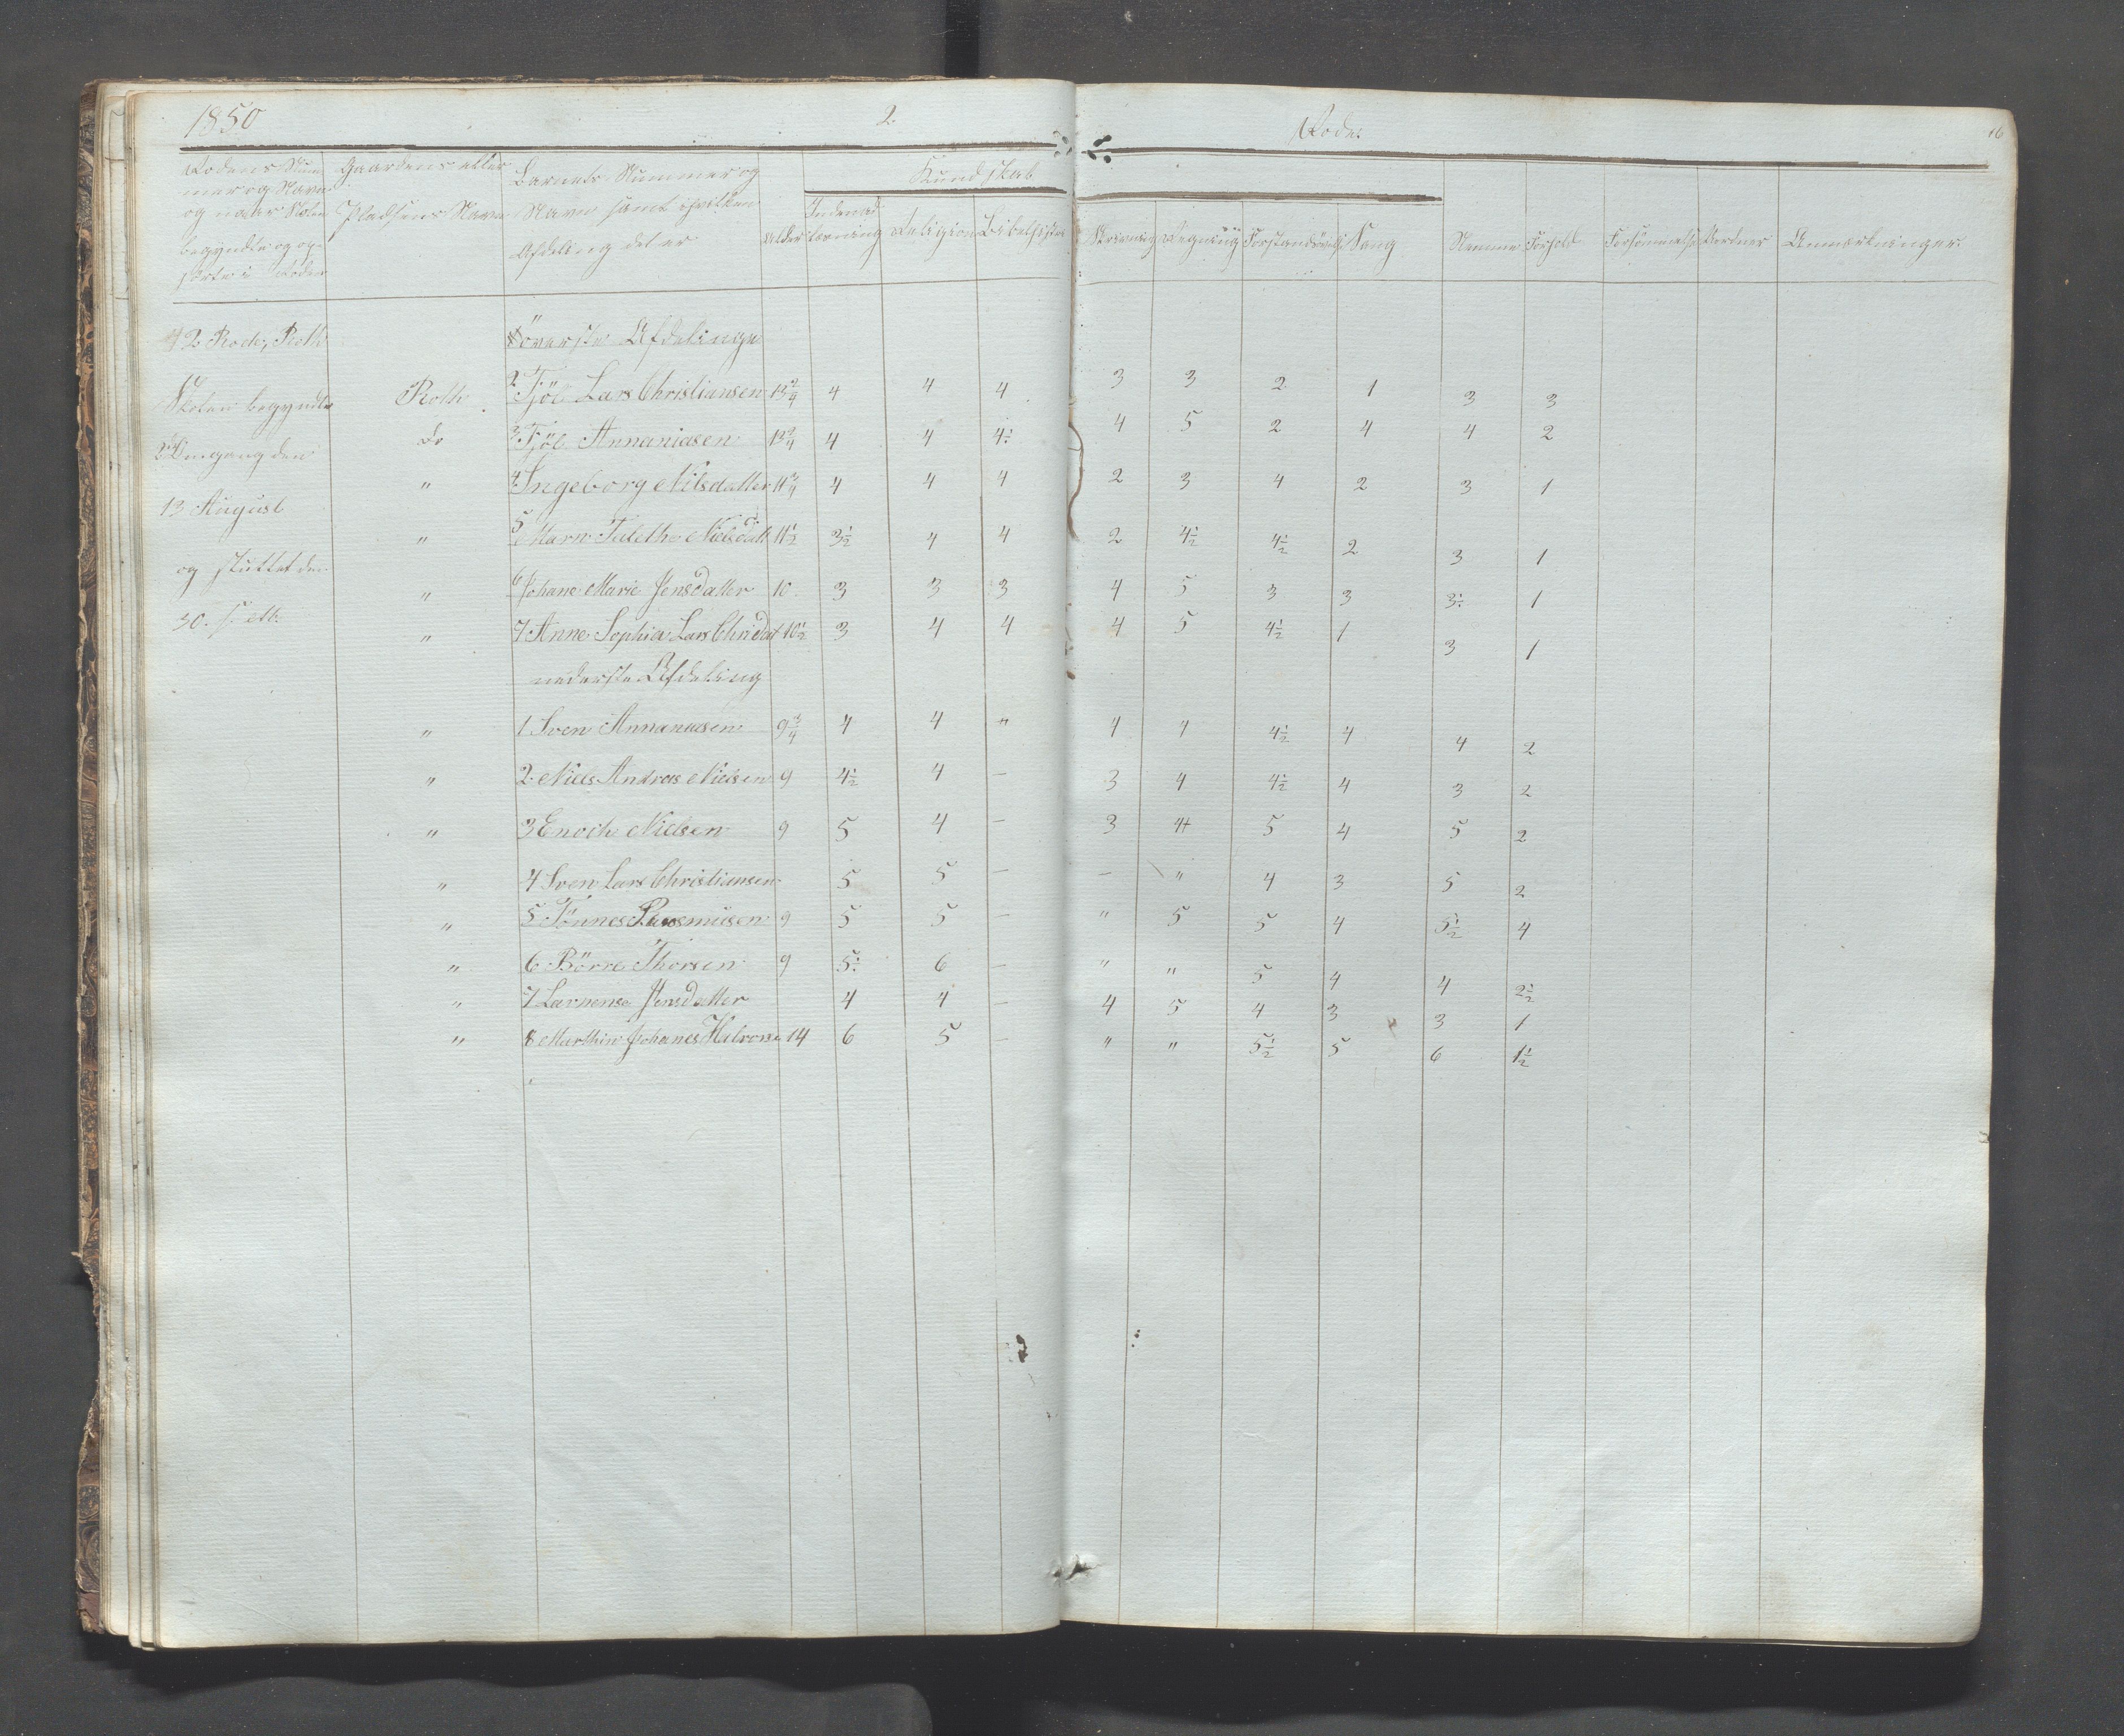 1850 2. Rode: 16
Rodens Num- Gaardens eller Barnets Nummer og Kundskab
mer og Navn
og naar Skolen Pladsens Navn Navn samt i hvilken Alder Indenad- Religion Bibelhistor Skrivning Regning Forstandsövelse Sang Nemme Forhold Forsömmelse Anmærkninger
begyndte og op- Afdeling det er læsning
hörte i Roden
2 Rode, Roth överste Afdelinge
Skolen begyndte Roth 2 Tjöl Lars Christiansen 13 3/4 4 4 4 3 3 2 1 3 3
2 Omgang den Do 3 Tjöl Annaniasen 13 3/4 4 4 4÷ 4 5 2 4 4 2
" 4 Ingeborg Nilsdatter 11 3/4 4 4 4 2 3 4 2 3 1
13 August
" 5 Maren Taleth Nielsdatt 11 1/2 3 1/2 4 4 2 4 1/2 4 1/2 2 3 1
og sluttet den
" 6 Johane Marie Jensdatter 10 3 3 3 4 5 3 3 3÷ 1
30. s. M.
" 7 Anne Sophia Lars Chrdat 10 1/2 3 4 4 4 5 4 1/2 1 3 1
nederste Afdeling
" 1 Sven Annaniasen 9 3/4 4 4 " 4 4 4 1/2 4 4 2
" 2 Niels Andreas Nielsen 9 4 1/2 4 — 3 4 4 1/2 4 3 2
" 3 Enoch Nielsen 9 5 4 — 3 4+ 5 4 5 2
" 4 Sven Lars Christiansen 5 5 — — " 4 3 5 2
" 5 Tönnes Rasmusen 9 5 5 — " 5 5 4 5 1/2 4
" 6 Börre Thorsen 9 5÷ 6 — " " 5 4 4 2 1/2
" 7 Larnense Jensdatter 4 4 — 4 5 4 3 3 1
" 8 Marthin Johanes Halvorse 14 6 5 — " " 5 1/2 5 6 1 1/2